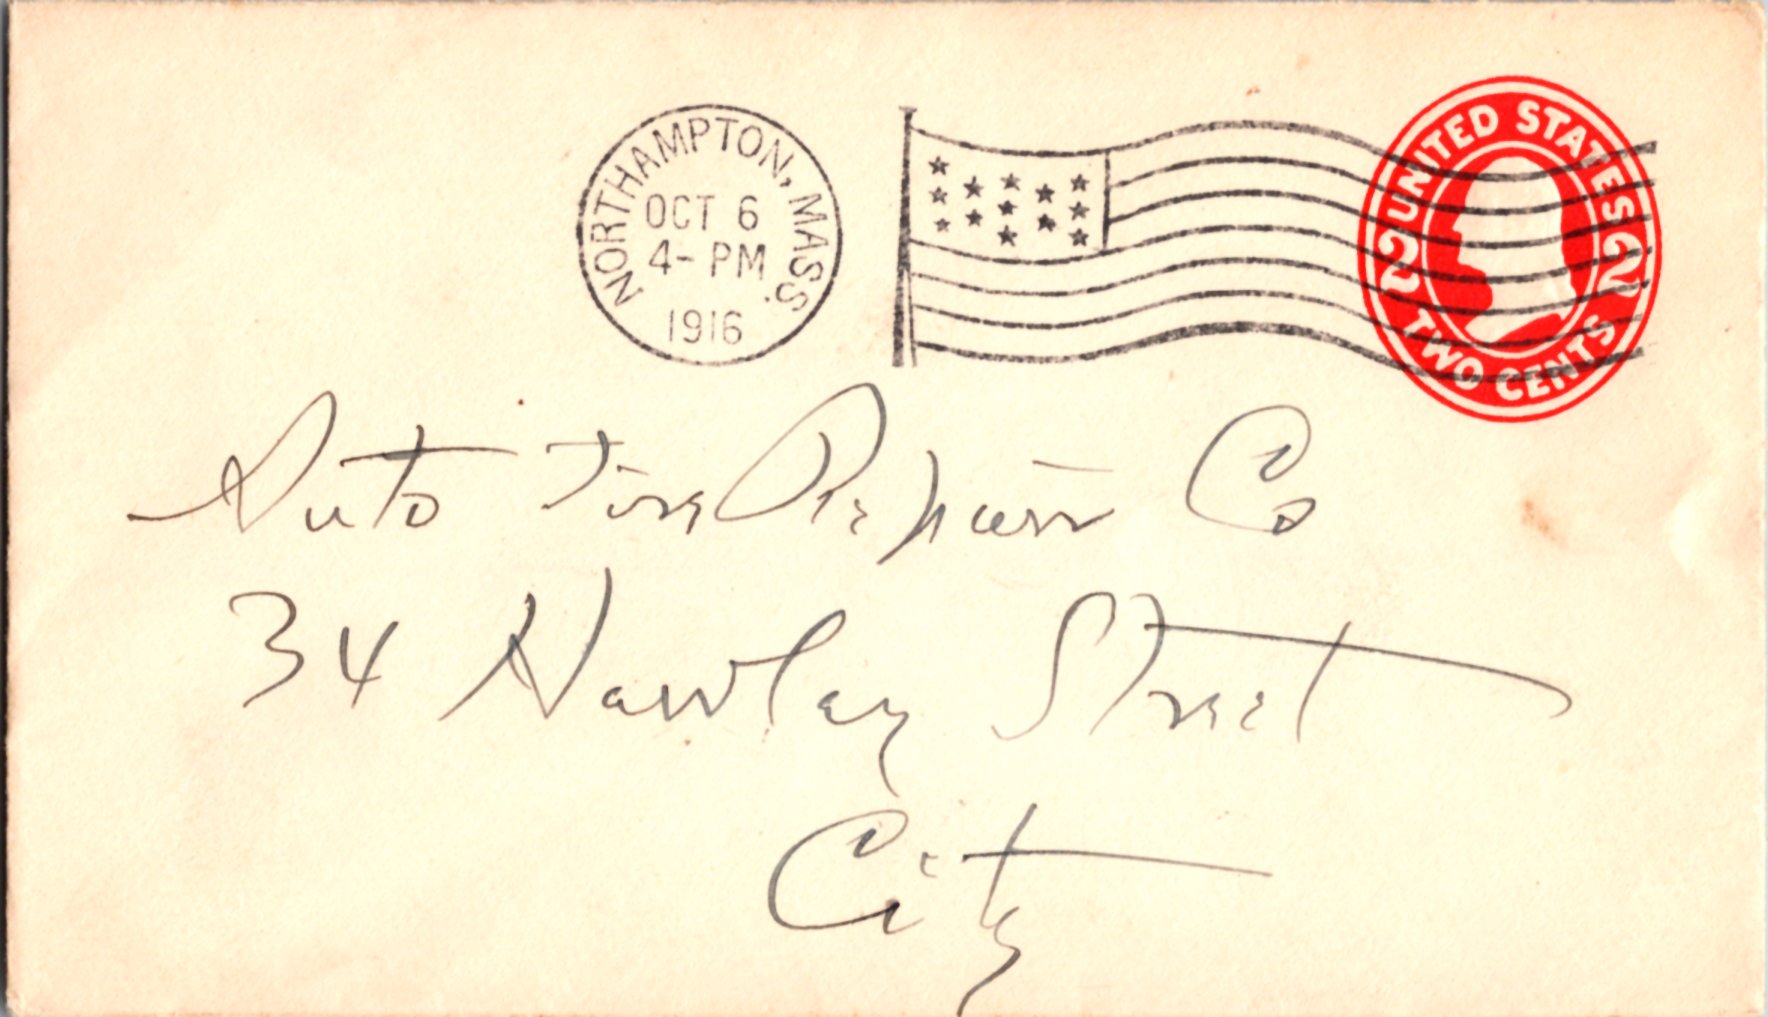 NORTHAMPTON, MASS.
OCT 6
4- PM
1916
UNITED STATES
2 2
TWO CENTS
Auto Tire Repair Co
34 Hawley Street
City